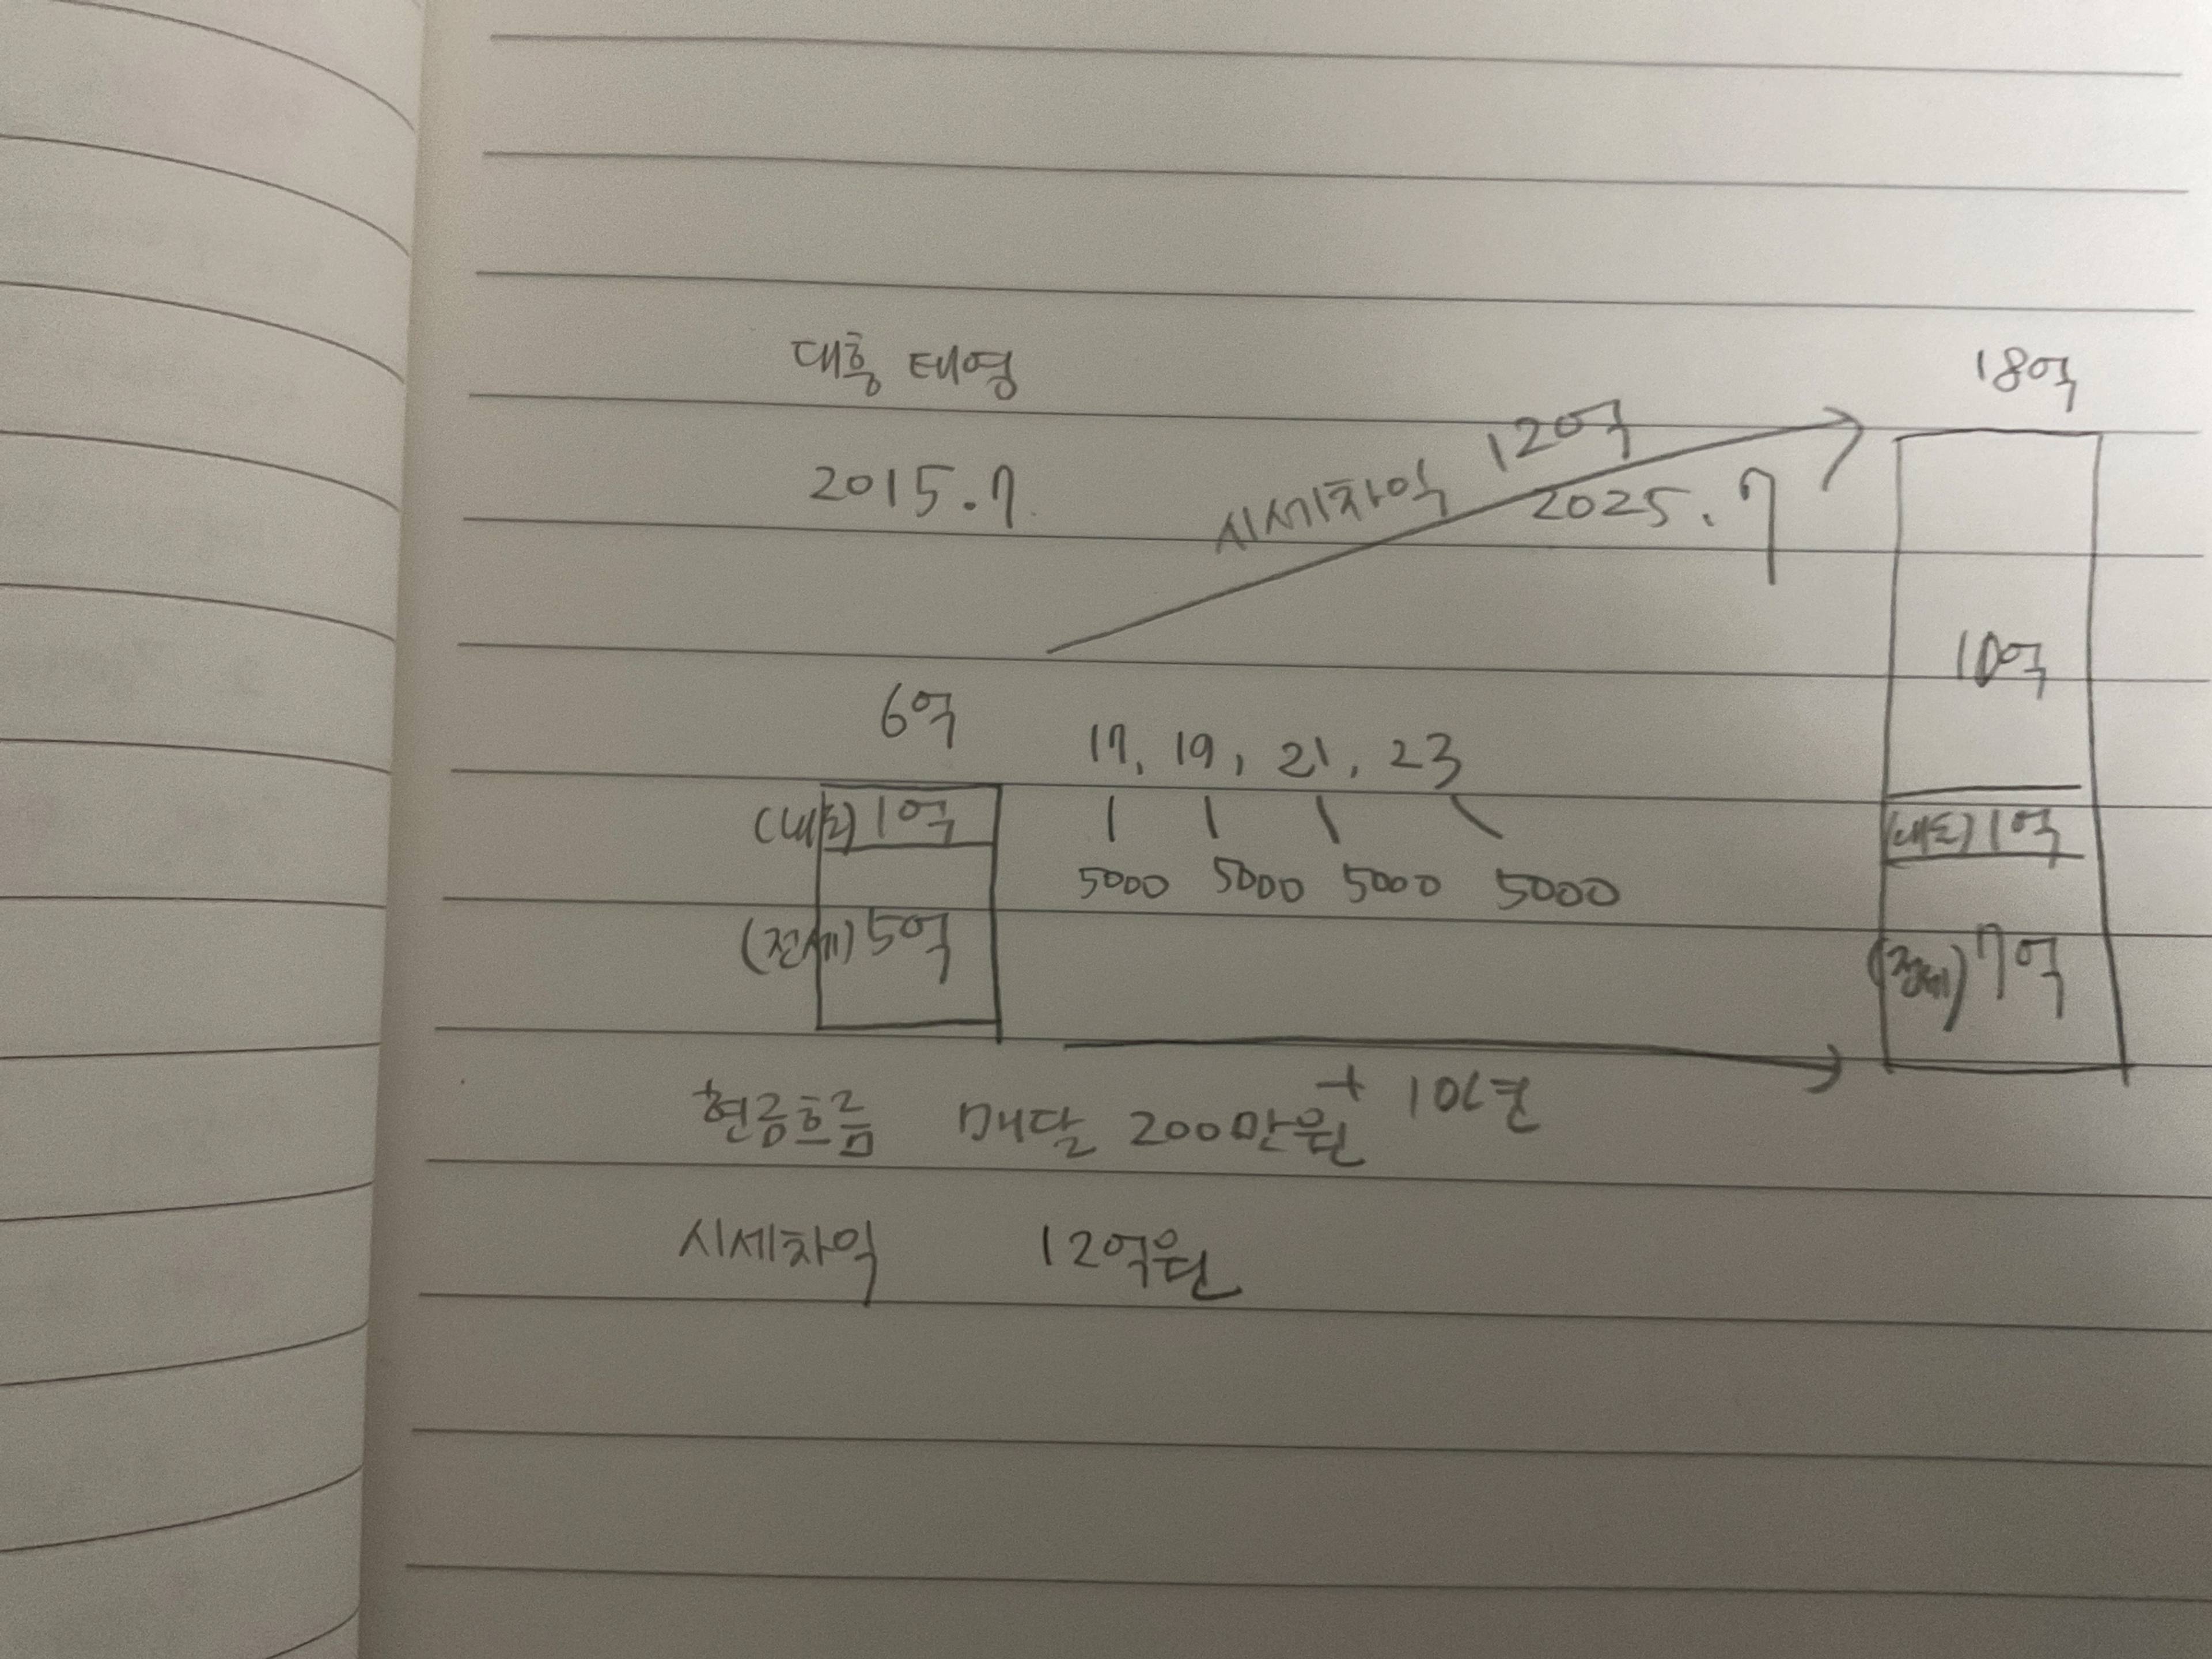 대흥 태영
18억
2015.7
시세차익 12억
2025.7
10억
6억
17, 19, 21, 23
(대출) 1억
5000 5000 5000 5000
(대출) 1억
(전세) 5억
(전세) 7억
현금흐름 매달 200만원 + 10년
시세차익 12억원